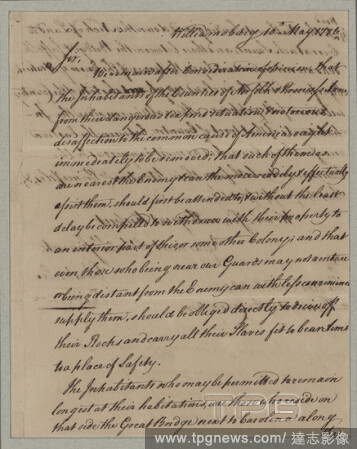 Williamsburg 10. May 1776.
Sir,
We are under consideration of opinion that
the Inhabitants of the Counties of Norfolk & Princess Anne
from their dangerous exposed situation & notorious
disaffection to the common cause of America ought
immediately to be removed; that such of them as
are nearest the Enemy & can the more readily & effectually
assist them, should first be attended to, & without the least
delay be compelled to withdraw with their property to
an interior part of this or some other Colony; and that
even those who being near our Guards may not venture
or being distant from the Enemy can with less convenience
supply them, should be obliged directly to drive off
their Stocks and carry all their Slaves fit to bear Arms
to a place of Safety.
The Inhabitants who may be permitted to remain
longest at their habitations, are those who reside on
that side the Great Bridge next to Carolina & along
TPG
www.tpgnews.com / 達志影像